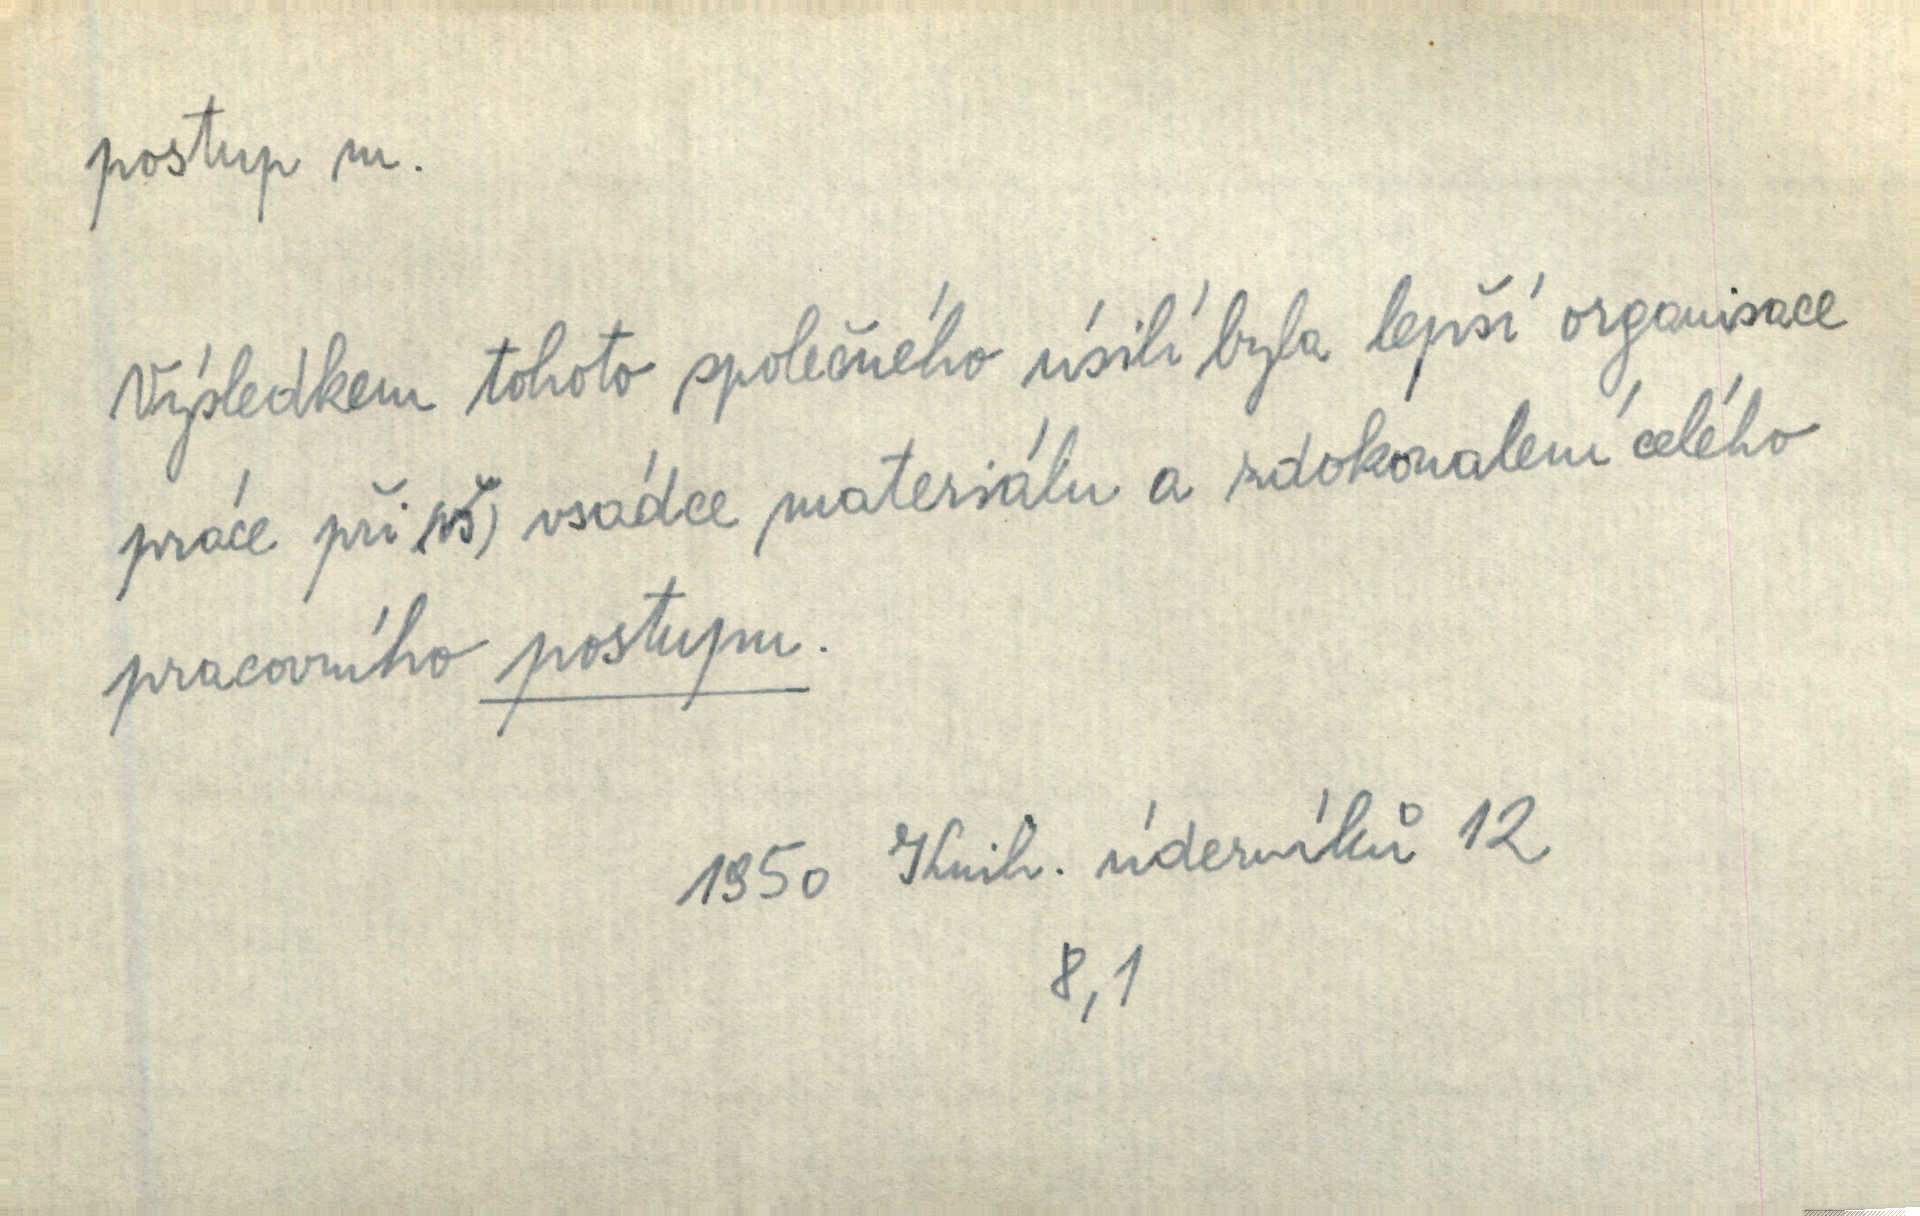 postup m.
Výsledkem tohoto společného úsilí byla lepší organisace
práce při vsádce materiálu a zdokonalení celého
pracovního postupu.
1950 Knih. úderníků 12
8,1